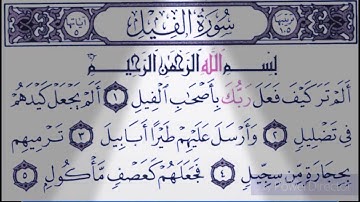 ترتيبها ١٠٥ سُورَةُ الفِيلِ آياتها ٥
بِسْمِ اللَّهِ الرَّحْمَٰنِ الرَّحِيمِ
أَلَمْ تَرَ كَيْفَ فَعَلَ رَبُّكَ بِأَصْحَٰبِ الْفِيلِ ١ أَلَمْ يَجْعَلْ كَيْدَهُمْ
فِى تَضْلِيلٍ ٢ وَأَرْسَلَ عَلَيْهِمْ طَيْرًا أَبَابِيلَ ٣ تَرْمِيهِم
بِحِجَارَةٍ مِّن سِجِّيلٍ ٤ فَجَعَلَهُمْ كَعَصْفٍ مَّأْكُولٍۭ ٥
PowerDirector